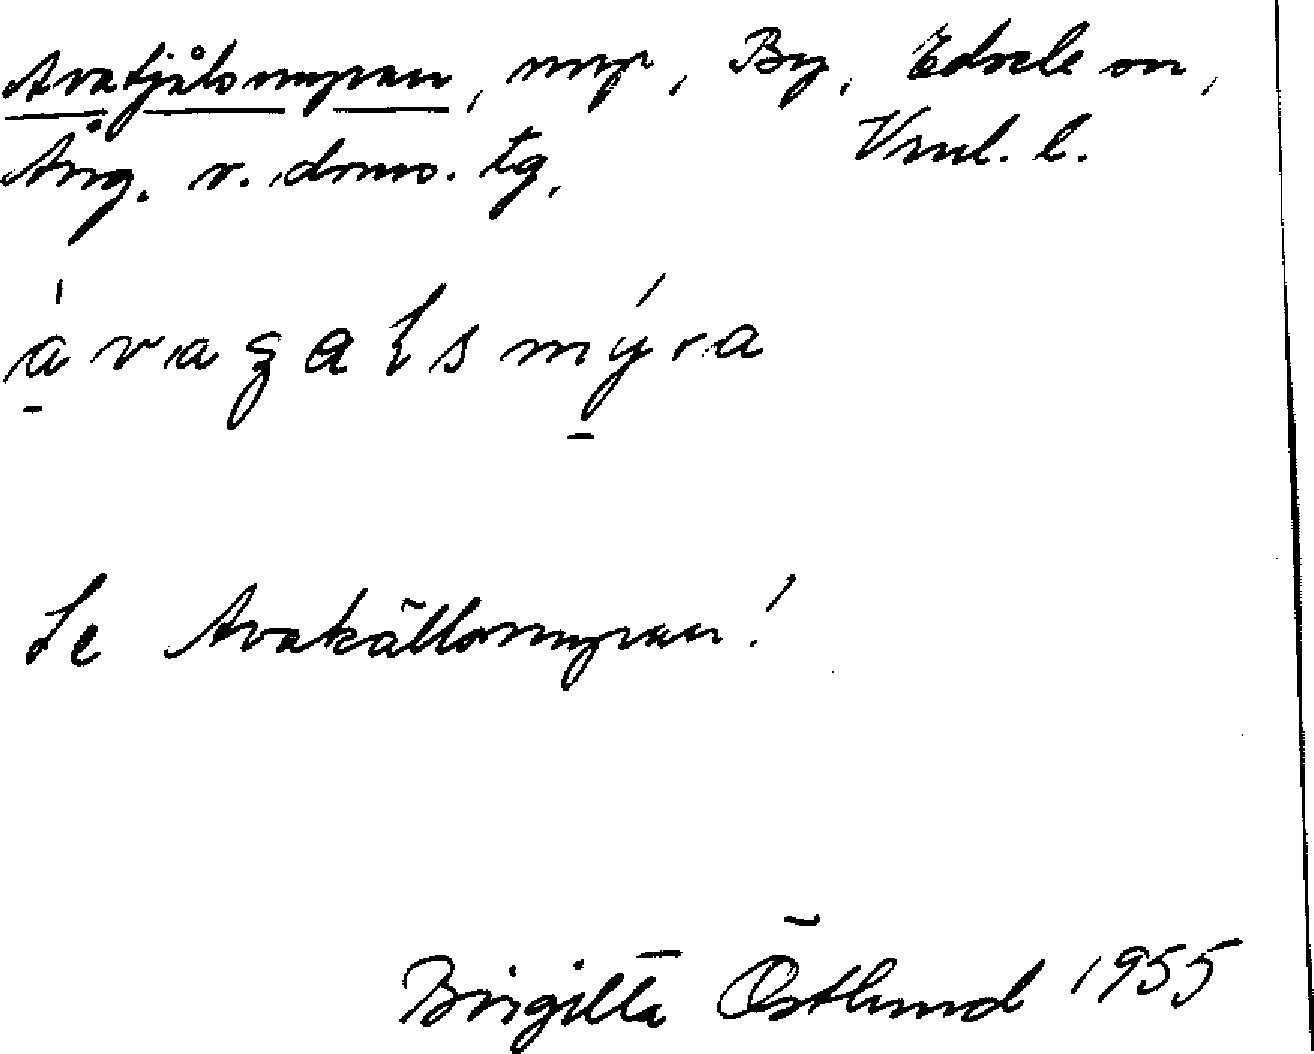 Avatjälsmyran, myr, By, Edsele sn,
Ång. v. doms. tg. Vrml. l.
ávagalsmýra
Se Avakällsmyran!
Birgitta Östlund 1955